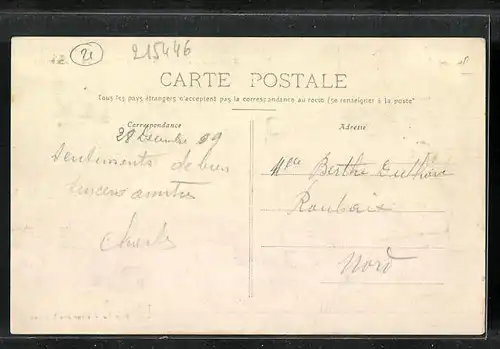 21
215446
CARTE POSTALE
Tous les pays étrangers n'acceptent pas la correspondance au recto (se renseigner à la poste)
Correspondance
Adresse
28 Décembre 09
Sentiments de bien
sincère amitié
Charles
Mlle Berthe
Roubaix
Nord